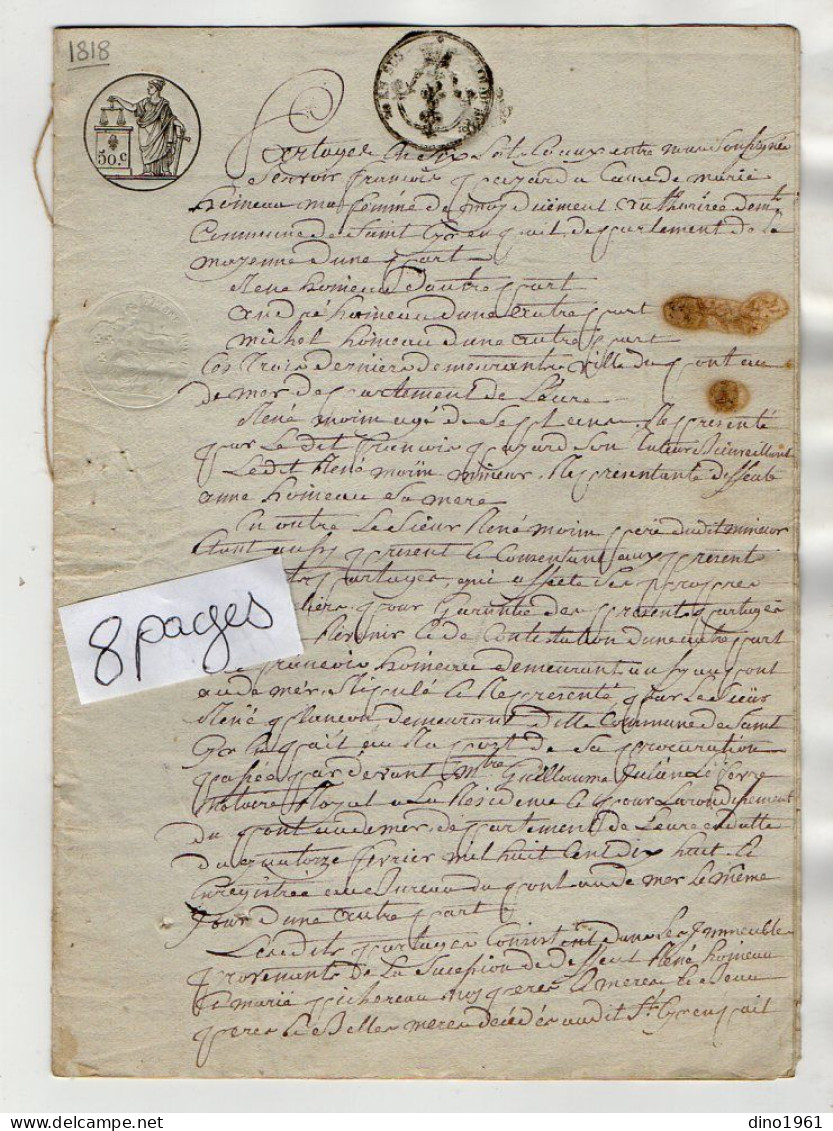 1818
50 c
EN SUS
Partages en six Lots Egaux entre nous Soussignés
Scavoir françois pajard a Cause de marie
hoineau ma femme de moy duëment authorisée demt
Commune de Saint Cyr en pait, departement de la
mayenne d'une part
René hoineau d'autre part
andré hoineau d'une autre part
michel hoineau d'une autre part
Les Trois derniers demeurants ville du pont au
de mer departement de L'eure
René moin agé de sept ans, Representé
par Le dit françois pajard son tuteur Bienveillant
Ledit René moïn mineur, Representant deffunte
anne hoineau sa mere
En outre Le Sieur René moin pere dudit mineur
Etant aussy present et Consentant aux presents
partages, qui affecte ses propres
pour Garantie des presents partages
de Contestation d'une autre part
françois hoineau demeurant aussy au pont
au de mer, Stipulé et Representé par Le Sieur
René plancon demeurant ditte Commune de Saint
Cyr en pait au Raport de sa procuration
passée par devant mtre Guillaume Julien Le ferre
Notaire Royal a La Résidence et pour L'arondissement
du pont audemer, departement de L'eure en datte
du quatorze fevrier mil huit Cent dix huit, et
Enregistrée au Bureau du pont au de mer le même
Jour d'une autre part
Lesdits partages Consistent dans Les Immeubles
provenants de La Succession de deffunt René hoineau
et marie pichereau nos peres et meres et Beau
peres et Belles meres décédés audit St Cyr en pait
8 pages
dino1961